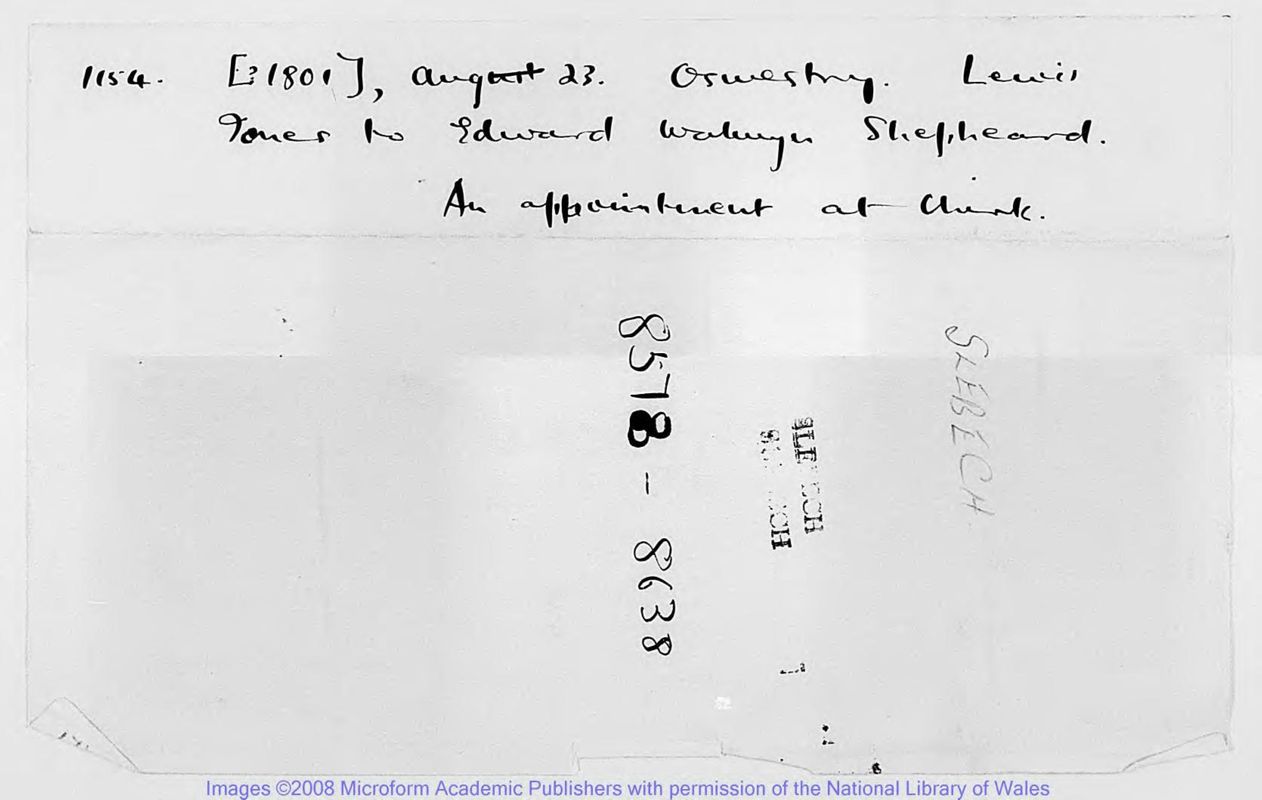 1154. [? 1801], August 23. Oswestry. Lewis
Jones to Edward Walwyn Shepheard.
An appointment at Chirk.
8578 - 8638
SLEBECH
SLEBECH
Images ©2008 Microform Academic Publishers with permission of the National Library of Wales